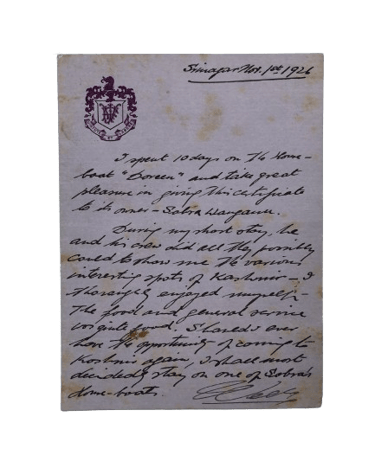 Srinagar Nov. 1st 1926
I spent 10 days on the House-
boat "Doreen" and take great
pleasure in giving this certificate
to its owner - Sobra
During my short stay, he
and his crew did all they possibly
could to show me the various
interesting spots of Kashmir - I
thoroughly enjoyed myself -
The food and general service
quite good. Should I ever
have the opportunity of coming to
Kashmir again, I shall most
decidedly stay on one of Sobra's
House-boats